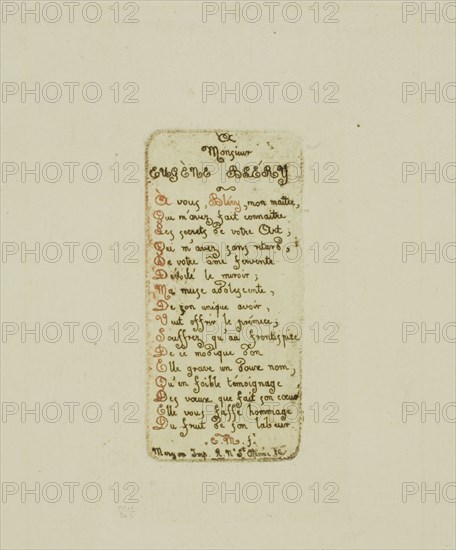 PHOTO 12 PHOTO 12 PHOTO 12
A
Monsieur
EUGÈNE BLÉRY
PHOTO 12 PHOTO 12 PHOTO 12
A vous, Bléry, mon maître,
Qui m'avez fait connaître
Les secrets de votre Art;
PHOTO 12 PHOTO 12 PHOTO 12
Qui m'avez, sans retard,
De votre âme fervente
Dévoilé le miroir;
Ma muse adolescente,
De son unique avoir,
Veut offrir le prémice;
PHOTO 12 PHOTO 12 PHOTO 12
Souffrez qu'au frontispice
De ce modique don
Elle grave un doux nom,
Qu'en foible témoignage
PHOTO 12 PHOTO 12 PHOTO 12
Des vœux que fait son cœur
Elle vous fasse hommage
Du fruit de son labeur.
C. M. f.
Meryon Imp. R. Nve St. Etienne
PHOTO 12 PHOTO 12 PHOTO 12